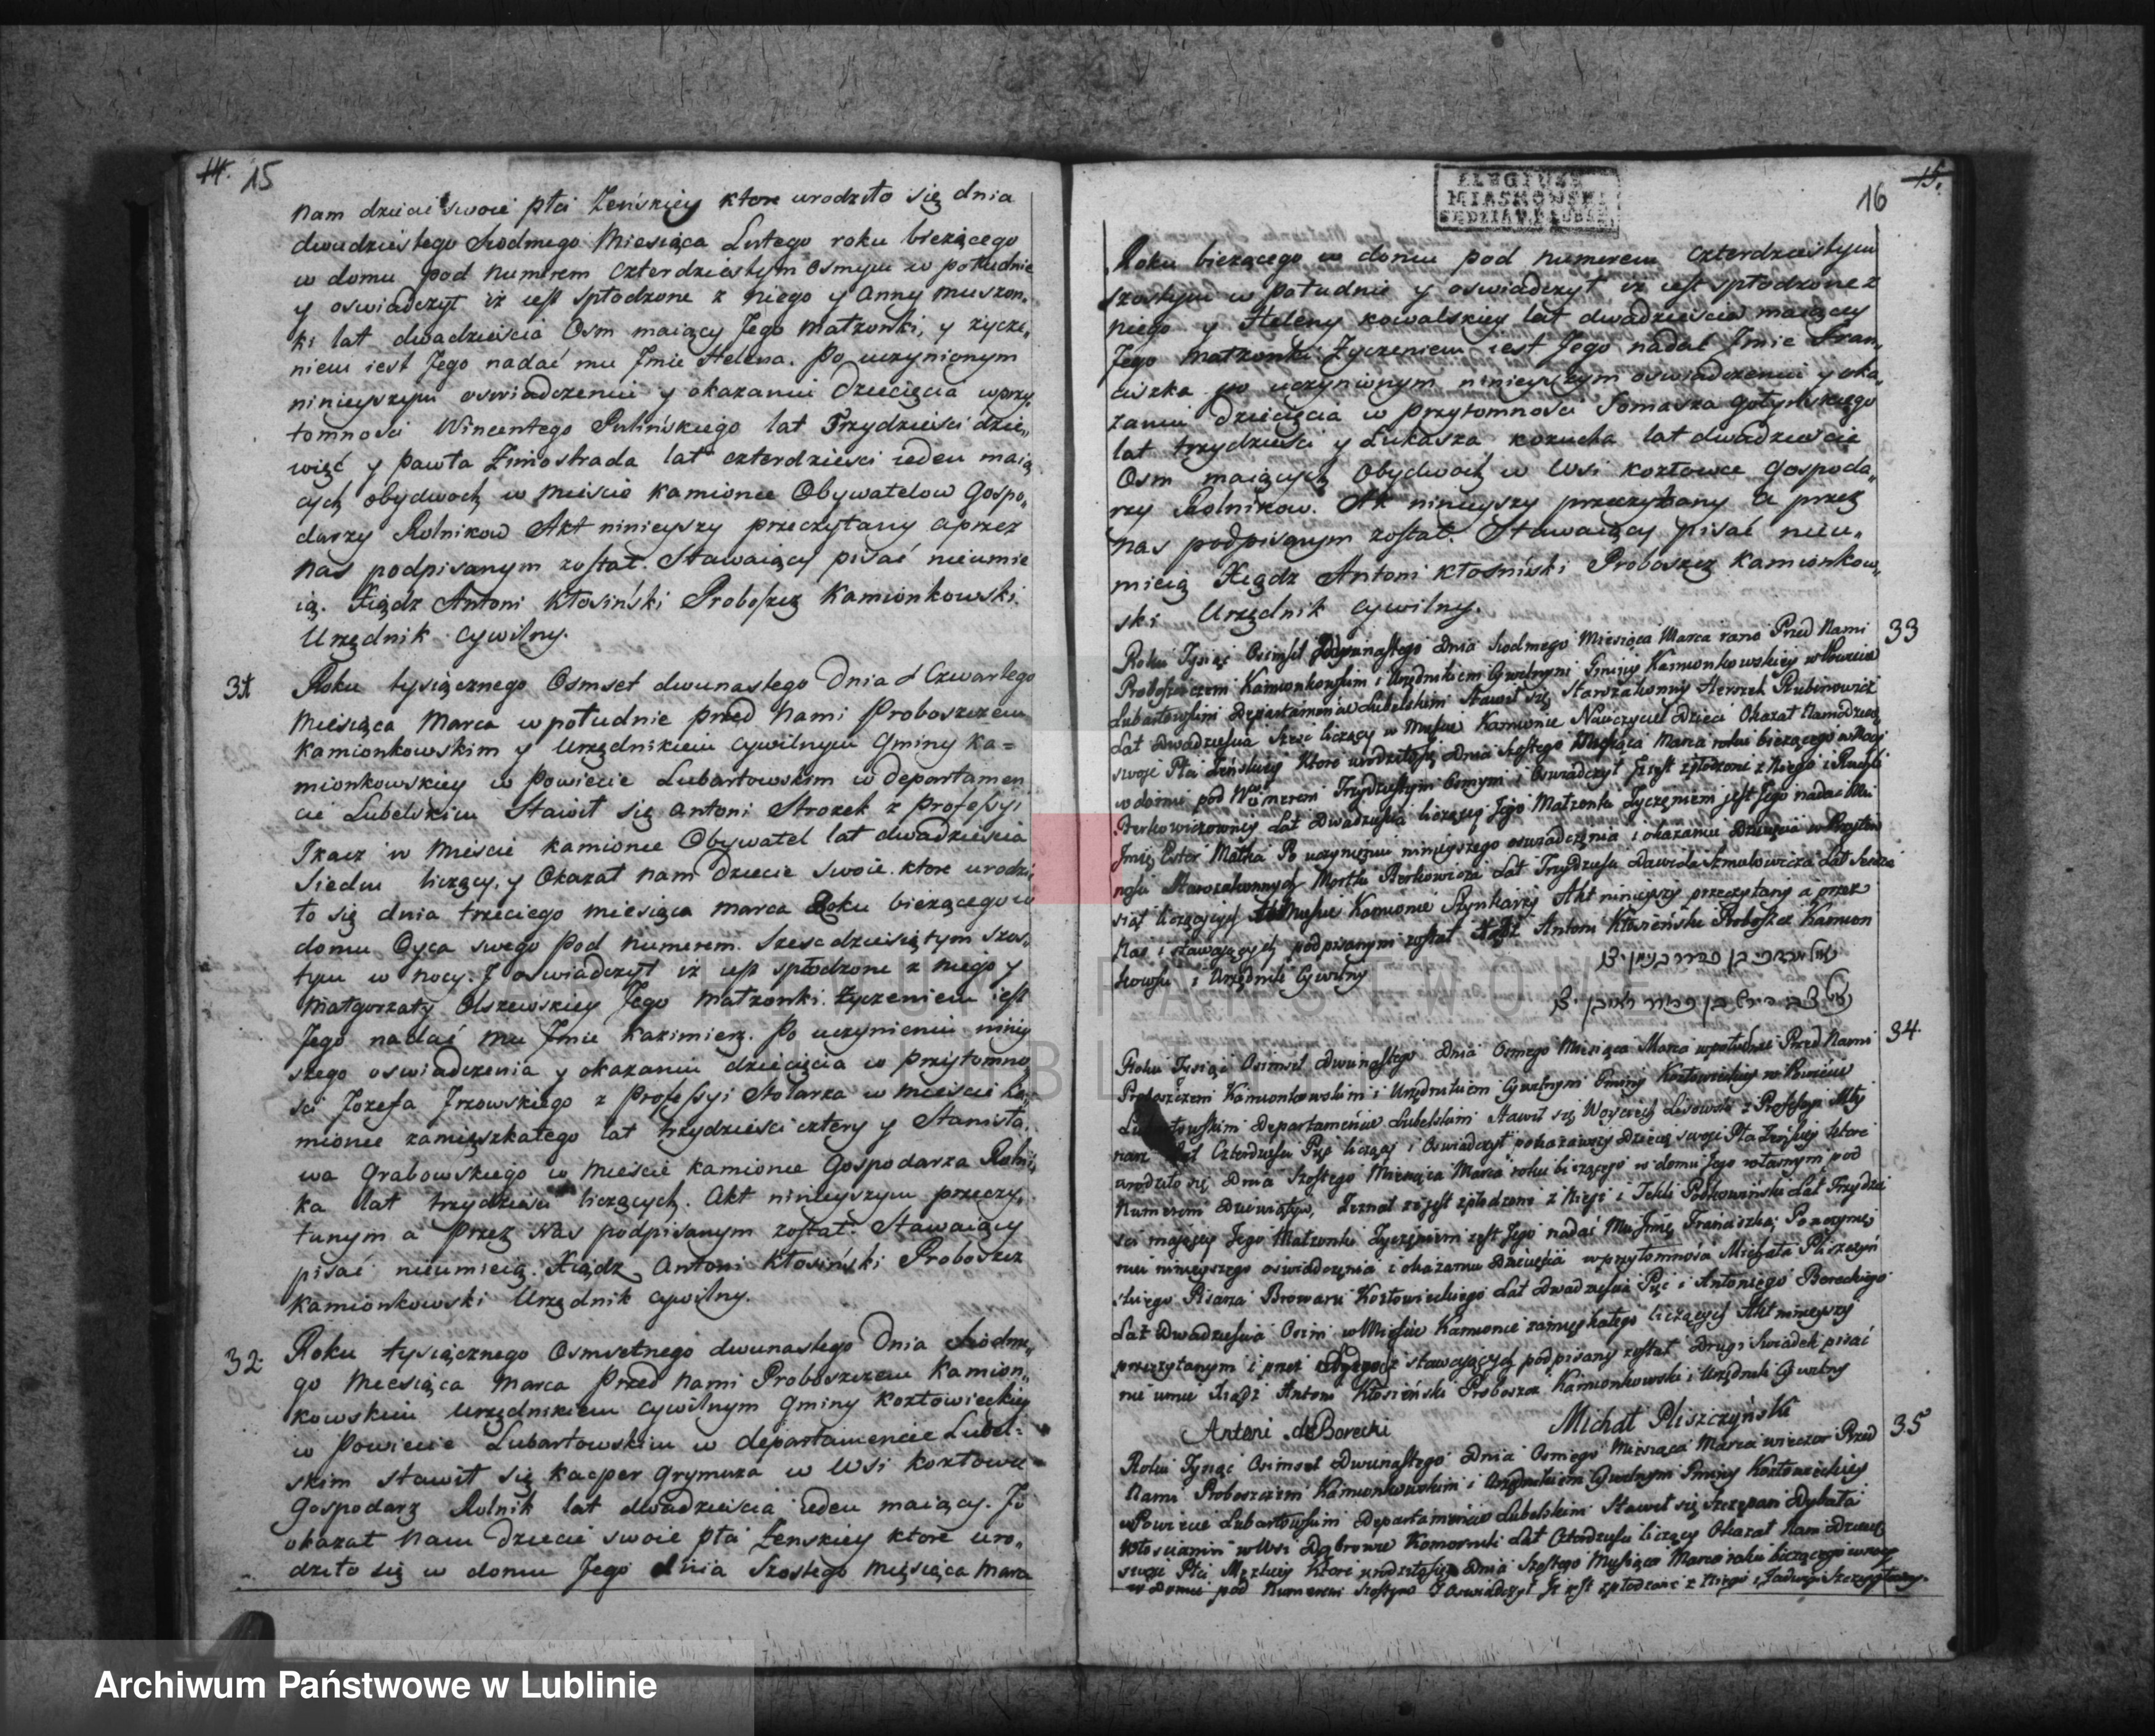 14. 15
nam dziecie swoie płci Żeńskiey ktore urodziło się dnia
dwudziestego Siodmego Miesiąca Lutego roku bieżącego
w domu pod numerem czterdziestym osmym w południe
y oswiadczył iż iest spłodzone z niego y Anny Muszon„
ki lat dwadzieścia Osm maiący Jego małżonki, y życze„
niem iest Jego nadać mu Jmie Helena. Po uczynionym
ninieyszym oswiadczeniu y okazaniu Dziecięcia w przy„
tomnosci Wincentego Pulińskiego lat Trzydzieści dzie„
więć y Pawła Zimostrada lat czterdziesci ieden maią„
cych obydwoch w mieście Kamionce Obywatelow Gospo„
darzy Rolnikow Akt ninieyszy przeczytany a przez
nas podpisanym został. Stawaiący pisać nieumie
ią. Xiądz Antoni Kłosiński Proboszcz Kamionkowski
Urzędnik cywilny.
31 Roku tysiącznego Osmset dwunastego Dnia Czwartego
Miesiąca Marca w południe przed Nami Proboszczem
Kamionkowskim y Urzędnikiem cywilnym Gminy Ka=
mionkowskiey w Powiecie Lubartowskim w departamen
cie Lubelskim Stawił się Antoni Strozek z Professyi
Tkacz w Mieście Kamionce Obywatel lat dwadzieścia
Siedm liczący, y Okazał nam Dziecie swoie ktore urodzi„
ło się dnia trzeciego miesiąca marca Roku bieżącego w
domu Oyca swego pod numerem Szescdziesiątym szos„
tym w nocy. J oswiadczył iż iest spłodzone z niego y
Małgorzaty Olszewskiey Jego małżonki. Życzeniem iest
Jego nadać mu Jmie Kazimierz. Po uczynieniu niniey
szego oswiadczenia y okazaniu dziecięcia w przytomno„
sci Jozefa Jrzowskiego z Professyi Stolarza w mieście Ka„
mionce zamieszkałego lat trzydzieści cztery y Stanisła„
wa Grabowskiego w Mieście Kamionce Gospodarza Rolni„
ka lat trzydziesci liczących. Akt ninieyszym przeczy„
tanym a Przez Nas podpisanym został. Stawaiący
pisać nieumieią. Xiądz Antoni Kłosiński Proboszcz
Kamionkowski Urzędnik cywilny.
32. Roku tysiącznego Osmsetnego dwunastego Dnia Siodme„
go Miesiąca Marca Przed Nami Proboszczem Kamion„
kowskim Urzędnikiem cywilnym Gminy Kozłowieckiey
w Powiecie Lubartowskim w departamencie Lubel=
skim stawił się Kacper Grymuza w Wsi Kozłowce
Gospodarz Rolnik lat dwadzieścia ieden maiący. J
okazał nam Dziecie swoie płci Żenskiey ktore uro„
dziło się w domu Jego dnia Szostego Miesiąca Marca
ELEGIUSZ
MIASKOWSKI
SĘDZIA
16 15.
Roku bieżącego w domu pod numerem czterdziestym
szostym w południe y oswiadczył iż iest spłodzone z
niego y Heleny Kowalskiey lat dwadzieścia maiącey
Jego małżonki Życzeniem iest Jego nadać Jmie Fran„
ciszka po uczynionym ninieyszym oswiadczeniu y oka„
zaniu dziecięcia w przytomnosci Tomasza Gołyńskiego
lat trzydzieści y Łukasza Kozucha lat dwadzieście
Osm maiących Obydwoch w Wsi Kozłowce Gospoda„
rzy Rolnikow. Akt ninieyszy przeczytany a przez
nas podpisanym został. Stawaiący pisać nieu„
mieią Xiądz Antoni Kłosiński Proboszcz Kamionkow„
ski Urzędnik cywilny.
33
Roku Tysiąc Osimset Dwunastego Dnia Siodmego Miesiąca Marca rano Przed Nami
Proboszczem Kamionkowskim i Urzędnikiem Cywilnym Gminy Kamionkowskiey w Powiecie
Lubartowskim Departamencie Lubelskim Stawił się Starozakonny Herszek Rubinowicz
Lat Dwadziescia Szesc liczący w Miescie Kamionce Nauczyciel Dzieci Okazał Nam Dziecie
swoje Płci Żeńskiey Ktore urodziło się Dnia Szostego Miesiąca Marca roku bieżącego w Nocy
w domu pod Numerem Trzydziestym Osmym i Oswiadczył iż jest spłodzone z Niego i Ruchli
Berkowiczowney Lat Dwadziescia liczącey Jego Małżonki Życzeniem jest Jego nadać Mu
Jmię Ester Małka Po uczynieniu ninieyszego oswiadczenia i okazaniu Dziecięcia w Przytom
nosci Starozakonnych Mortka Berkowicza Lat Trzydziesci Dawida Szmulowicza Lat Szesdzie
siąt liczących w Miescie Kamionce Szynkarzy Akt ninieyszy przeczytany a przez
Nas i stawających podpisanym został Xiądz Antoni Kłosieński Proboszcz Kamion
kowski i Urzędnik Cywilny
34.
Roku Tysiąc Osimset Dwunastego Dnia Osmego Miesiąca Marca w południe Przed Nami
Proboszczem Kamionkowskim i Urzędnikiem Cywilnym Gminy Kozłowieckiey w Powiecie
Lubartowskim Departamencie Lubelskim Stawił się Woyciech Lisowski z Professyi Mły
narz Lat Czterdziesci Pięć liczący i Oswiadczył pokazawszy Dziecię swoje Płci Żeńskiey ktore
urodziło się Dnia Szostego Miesiąca Marca roku bieżącego w domu Jego własnym pod
Numerem Dziewiątym, Zeznał że jest spłodzone z Niego i Tekli Lat Trzydzie
sci mającey Jego Małżonki Życzeniem jest Jego nadać Mu Jmię Franciszka; Po uczynie
niu ninieyszego oswiadczenia i okazaniu Dziecięcia w przytomnosci Michała Pliszczyń
skiego Pisarza Browaru Kozłowieckiego Lat Dwadziescia Pięć i Antoniego Boreckiego
Lat Dwadziescia Osim w Miescie Kamionce zamieszkałego liczących Akt ninieyszy
przeczytanym i przez stawających podpisany został Drugi Swiadek pisać
nie umie Xiądz Antoni Kłosieński Proboszcz Kamionkowski i Urzędnik Cywilny
Antoni Borecki Michał Pliszczyński
35
Roku Tysiąc Osimset Dwunastego Dnia Osmego Miesiąca Marca wieczor Przed
Nami Proboszczem Kamionkowskim i Urzędnikiem Cywilnym Gminy Kozłowieckiey
w Powiecie Lubartowskim Departamencie Lubelskim Stawił się Szczepan Dybała
Włoscianin w Wsi Dąbrowce Komornik Lat Czterdziesci liczący Okazał Nam Dziecię
swoje Płci Męzkiey Ktore urodziło się Dnia Szostego Miesiąca Marca roku bieżącego w nocy
w Domu pod Numerem Szostym i Oswiadczył iż jest spłodzone z Niego i Jadwigi
ARCHIWUM PAŃSTWOWE
W LUBLINIE
Archiwum Państwowe w Lublinie